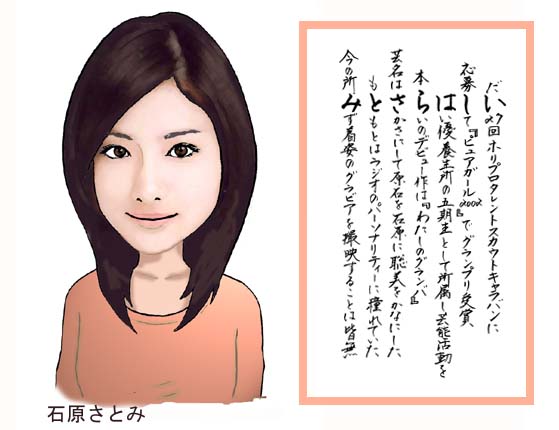 だい27回ホリプロタレントスカウトキャラバンに
応募して『ピュアガール2002』でグランプリ受賞
はい優養生所の五期生として所属し芸能活動を
本らいのデビュー作は『わたしのグランパ』
芸名はさかさにして原石を石原に聡美をかなにした
もともとはラジオのパーソナリティーに憧れていた
今の所みず着姿のグラビアを撮映することは皆無
石原さとみ